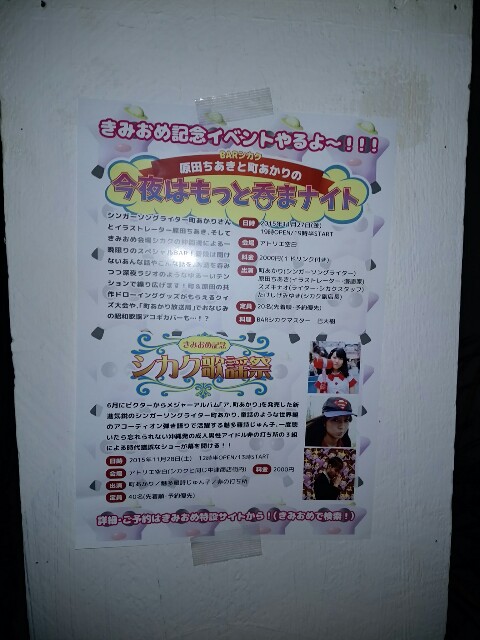 きみおめ記念イベントやるよ〜！！！
BARシカク
原田ちあきと町あかりの
今夜はもっと呑まナイト
シンガーソングライター町あかりさん
とイラストレーター原田ちあき、そして
きみおめ会場シカクの仲間達による一
夜限りのスペシャルBAR！
つつ深夜ラジオのようなゆる〜いテン
ションで繰り広げます！町&原田の共
作ドローインググッズがもらえるクイ
ズ大会や、「町あかり放送局」でおなじみ
の昭和歌謡アコギカバーも…！？
日時 2015年11月27日(金)
19時OPEN/19時半START
会場 アトリエ空白
料金 2000円(1ドリンク付き)
出演 町あかり(シンガーソングライター)
原田ちあき(イラストレーター・漫画家)
スズキナオ(ライター・シカクスタッフ)
たけしげみゆき(シカク副店長)
定員 20名(先着順・予約優先)
料理 BARシカクマスター
きみおめ記念
シカク歌謡祭
6月にビクターからメジャーアルバム「ア、町あかり」を発売した新
進気鋭のシンガーソングライター町あかり、童話のような世界観
のアコーディオン弾き語りで活躍する魅多羅詩じゅん子、一度聴
いたら忘れられない沖縄発の成人男性アイドル赤の打ち所の3組
による時代錯誤なショーが幕を開ける！！
日時 2015年11月28日(土) 12時半OPEN/13時START
会場 アトリエ空白(シカクと同じ中津商店街内) 料金 2000円
出演 町あかり／魅多羅詩じゅん子／赤の打ち所
定員 40名(先着順・予約優先)
詳細・ご予約はきみおめ特設サイトから！(きみおめで検索！)